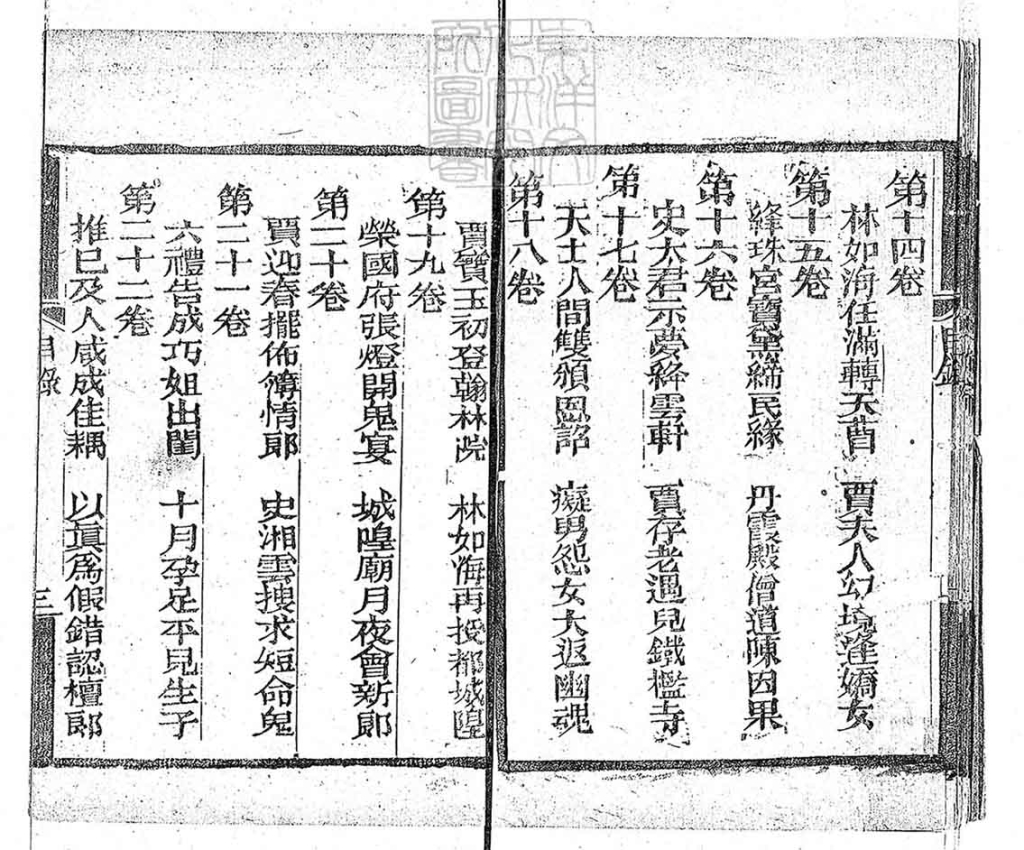 第十四卷
林如海任滿轉天曹　賈夫人幻境逢嬌女
第十五卷
絳珠宮寶黛締民緣　丹霞殿僧道陳因果
第十六卷
史太君示夢絳雲軒　賈存老遇兒鐵檻寺
第十七卷
天士人間雙頒恩詔　癡男怨女大返幽魂
第十八卷
賈寳玉初登翰林院　林如海再授都城隍
第十九卷
榮國府張燈開鬼宴　城隍廟月夜會新郎
第二十卷
賈迎春擺佈薄情郎　史湘雲搜求短命鬼
第二十一卷
六禮告成巧姐出閨　十月孕足平兒生子
第二十二卷
推已及人咸成佳耦　以眞爲假錯認檀郎
目錄
三